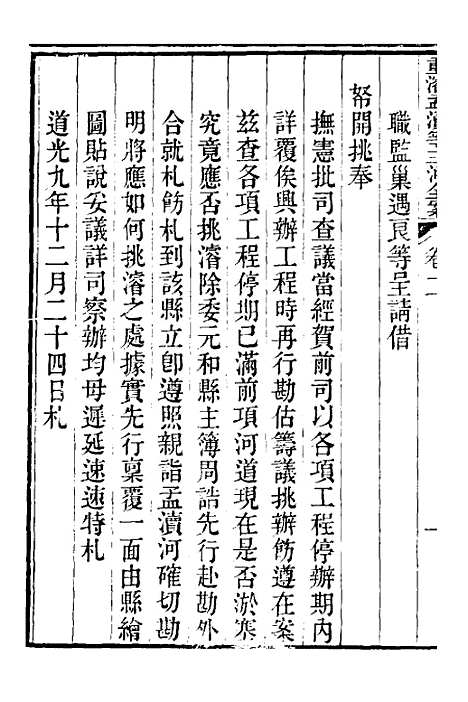 重濬孟瀆等三河全案 卷二 一
職監巢遇良等呈請借
帑開挑奉
撫憲批司查議當經賀前司以各項工程停辦期內
詳覆俟興辦工程時再行勘估籌議挑辦飭遵在案
茲查各項工程停期已滿前項河道現在是否淤塞
究竟應否挑濬除委元和縣主簿周誥先行赴勘外
合就札飭札到該縣立卽遵照親詣孟瀆河確切勘
明將應如何挑濬之處據實先行稟覆一面由縣繪
圖貼說妥議詳司察辦均毋遲延速速特札
道光九年十二月二十四日札